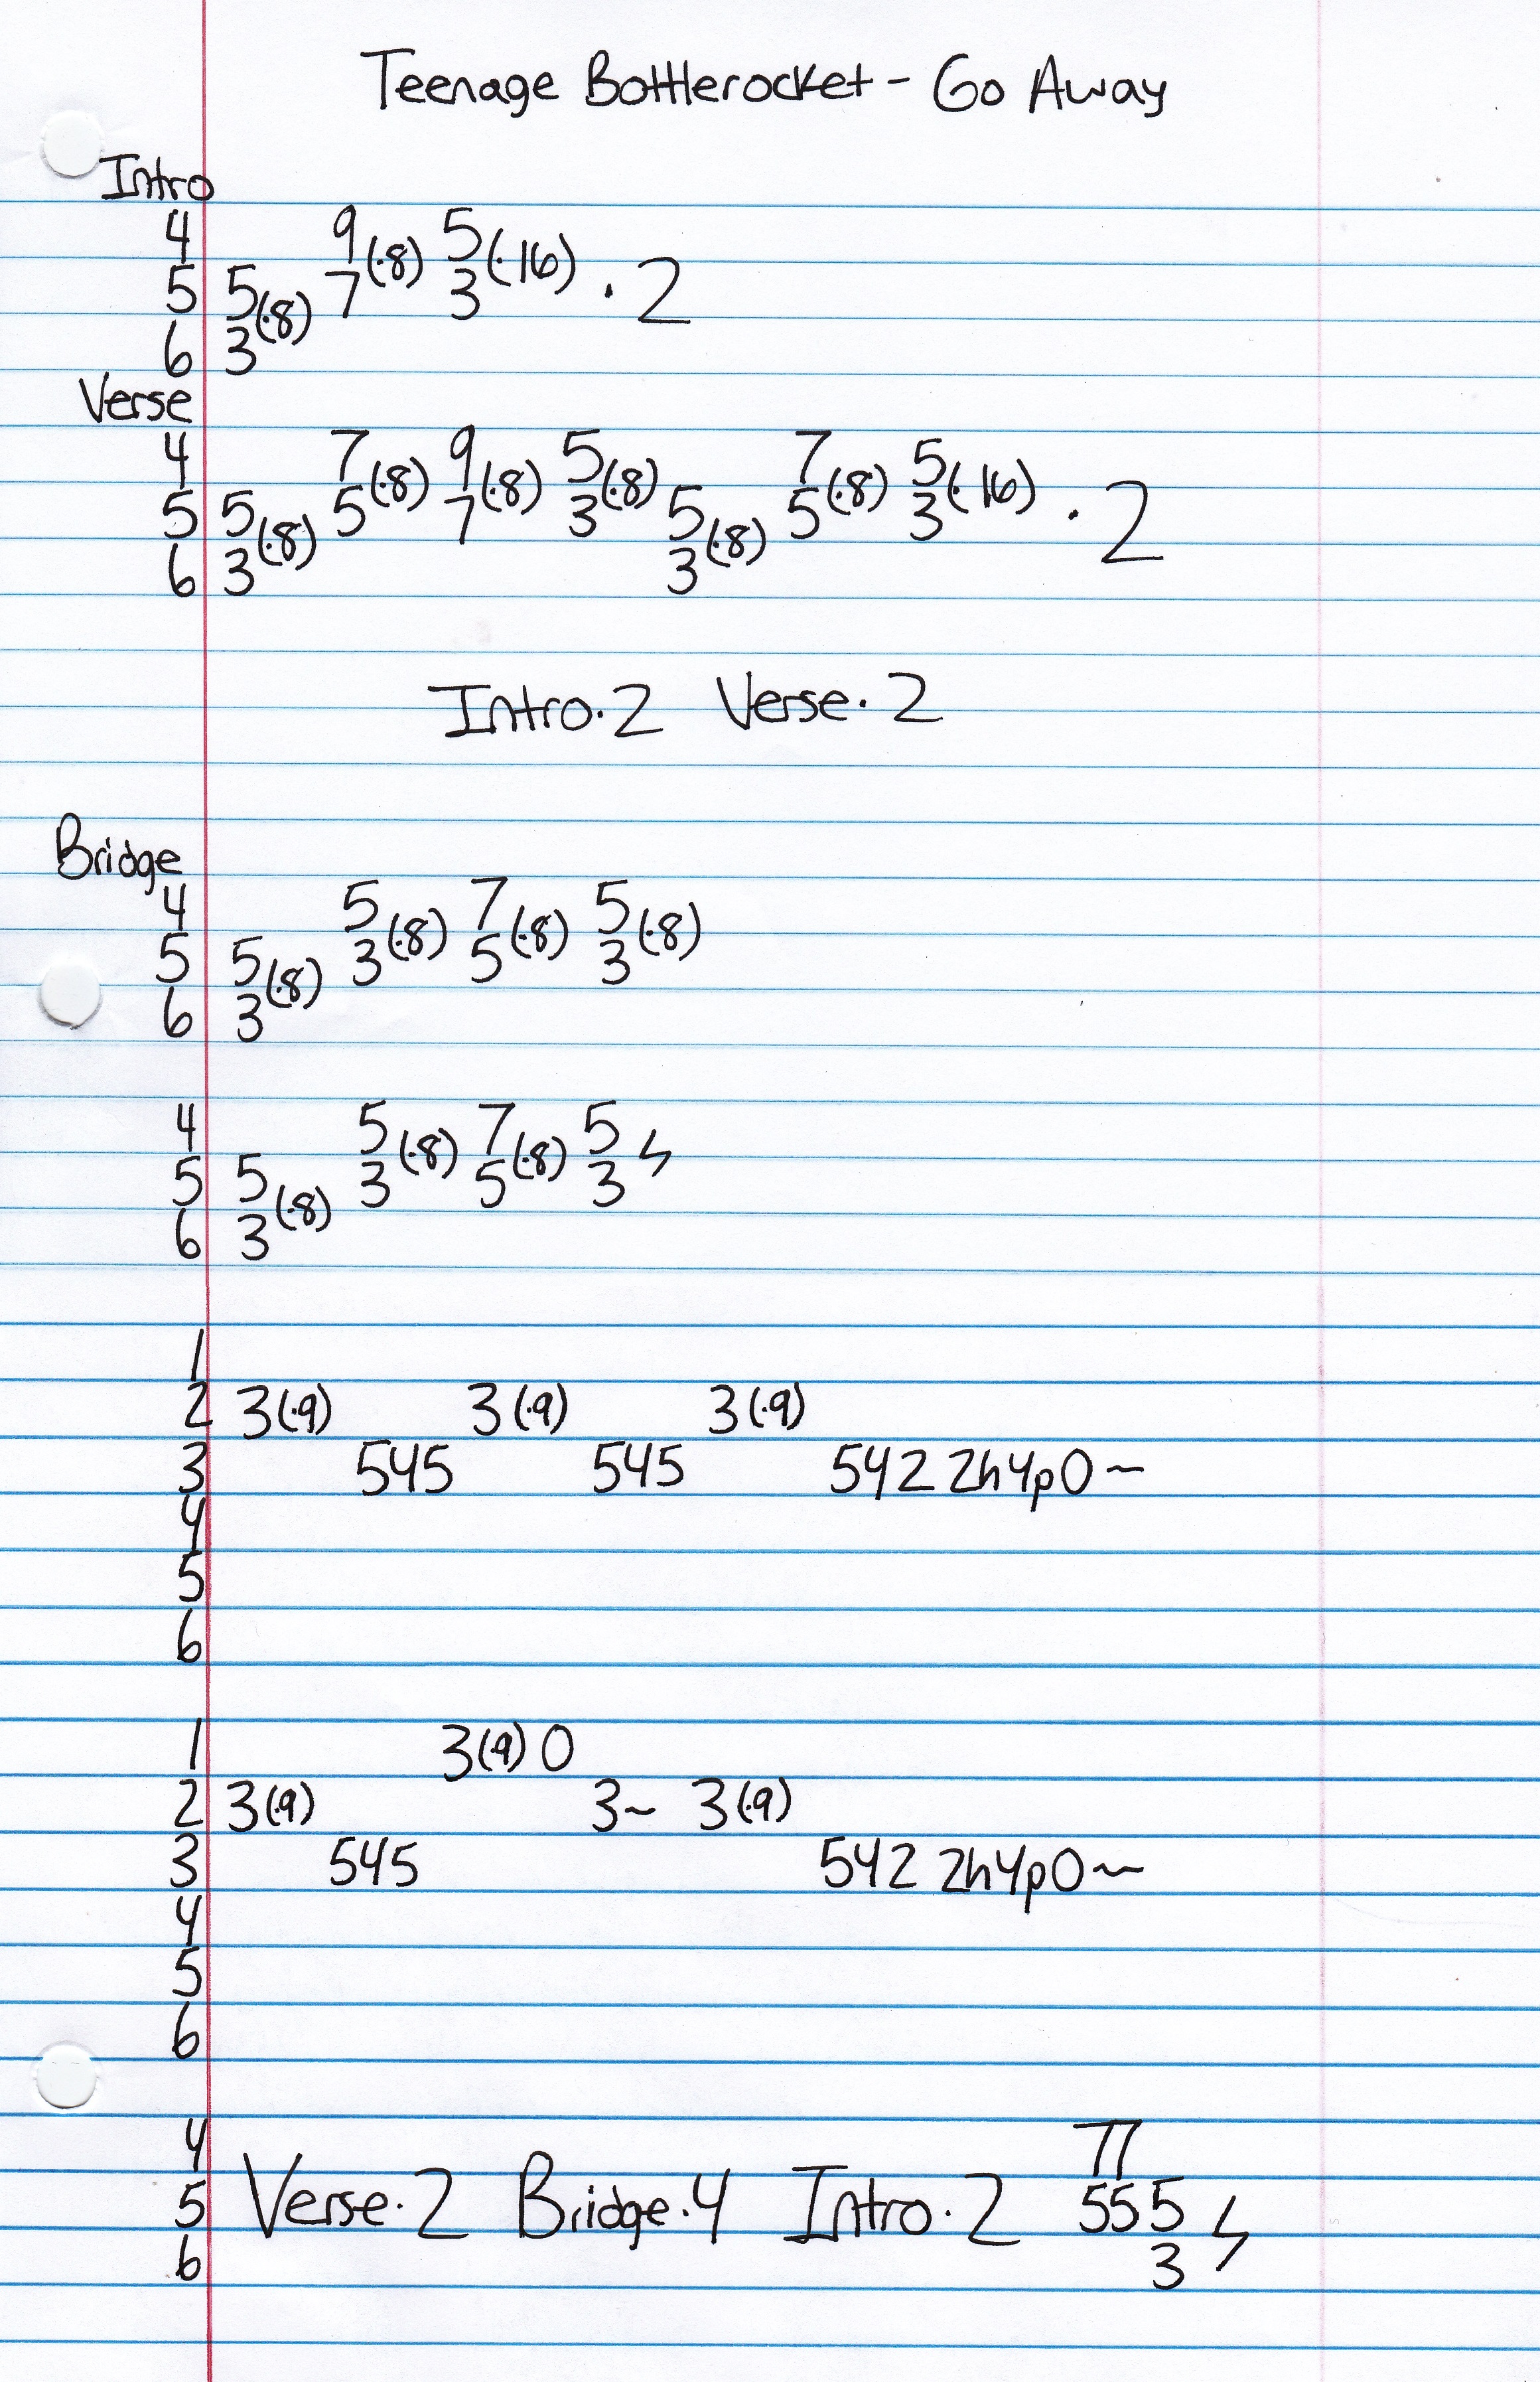 Teenage Bottlerocket - Go Away
Intro
4 9(·8) 5(·16)
5 5(·8) 7 3 · 2
6 3
Verse
4 7(·8) 9(·8) 5(·8) 7(·8) 5(·16)
5 5(·8) 5 7 3 5(·8) 5 3 · 2
6 3 3
Intro·2 Verse·2
Bridge
4 5(·8) 7(·8) 5(·8)
5 5(·8) 3 5 3
6 3
4 5(·8) 7(·8) 5 ϟ
5 5(·8) 3 5 3
6 3
1
2 3(·9) 3(·9) 3(·9)
3 545 545 542 2h4p0~
4
5
6
1 3(·9) 0
2 3(·9) 3~ 3(·9)
3 545 542 2h4p0~
4
5
6
4 77
5 Verse·2 Bridge·4 Intro·2 555 ϟ
6 3